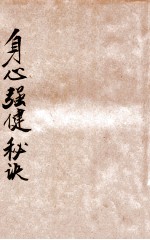 身心强健秘诀